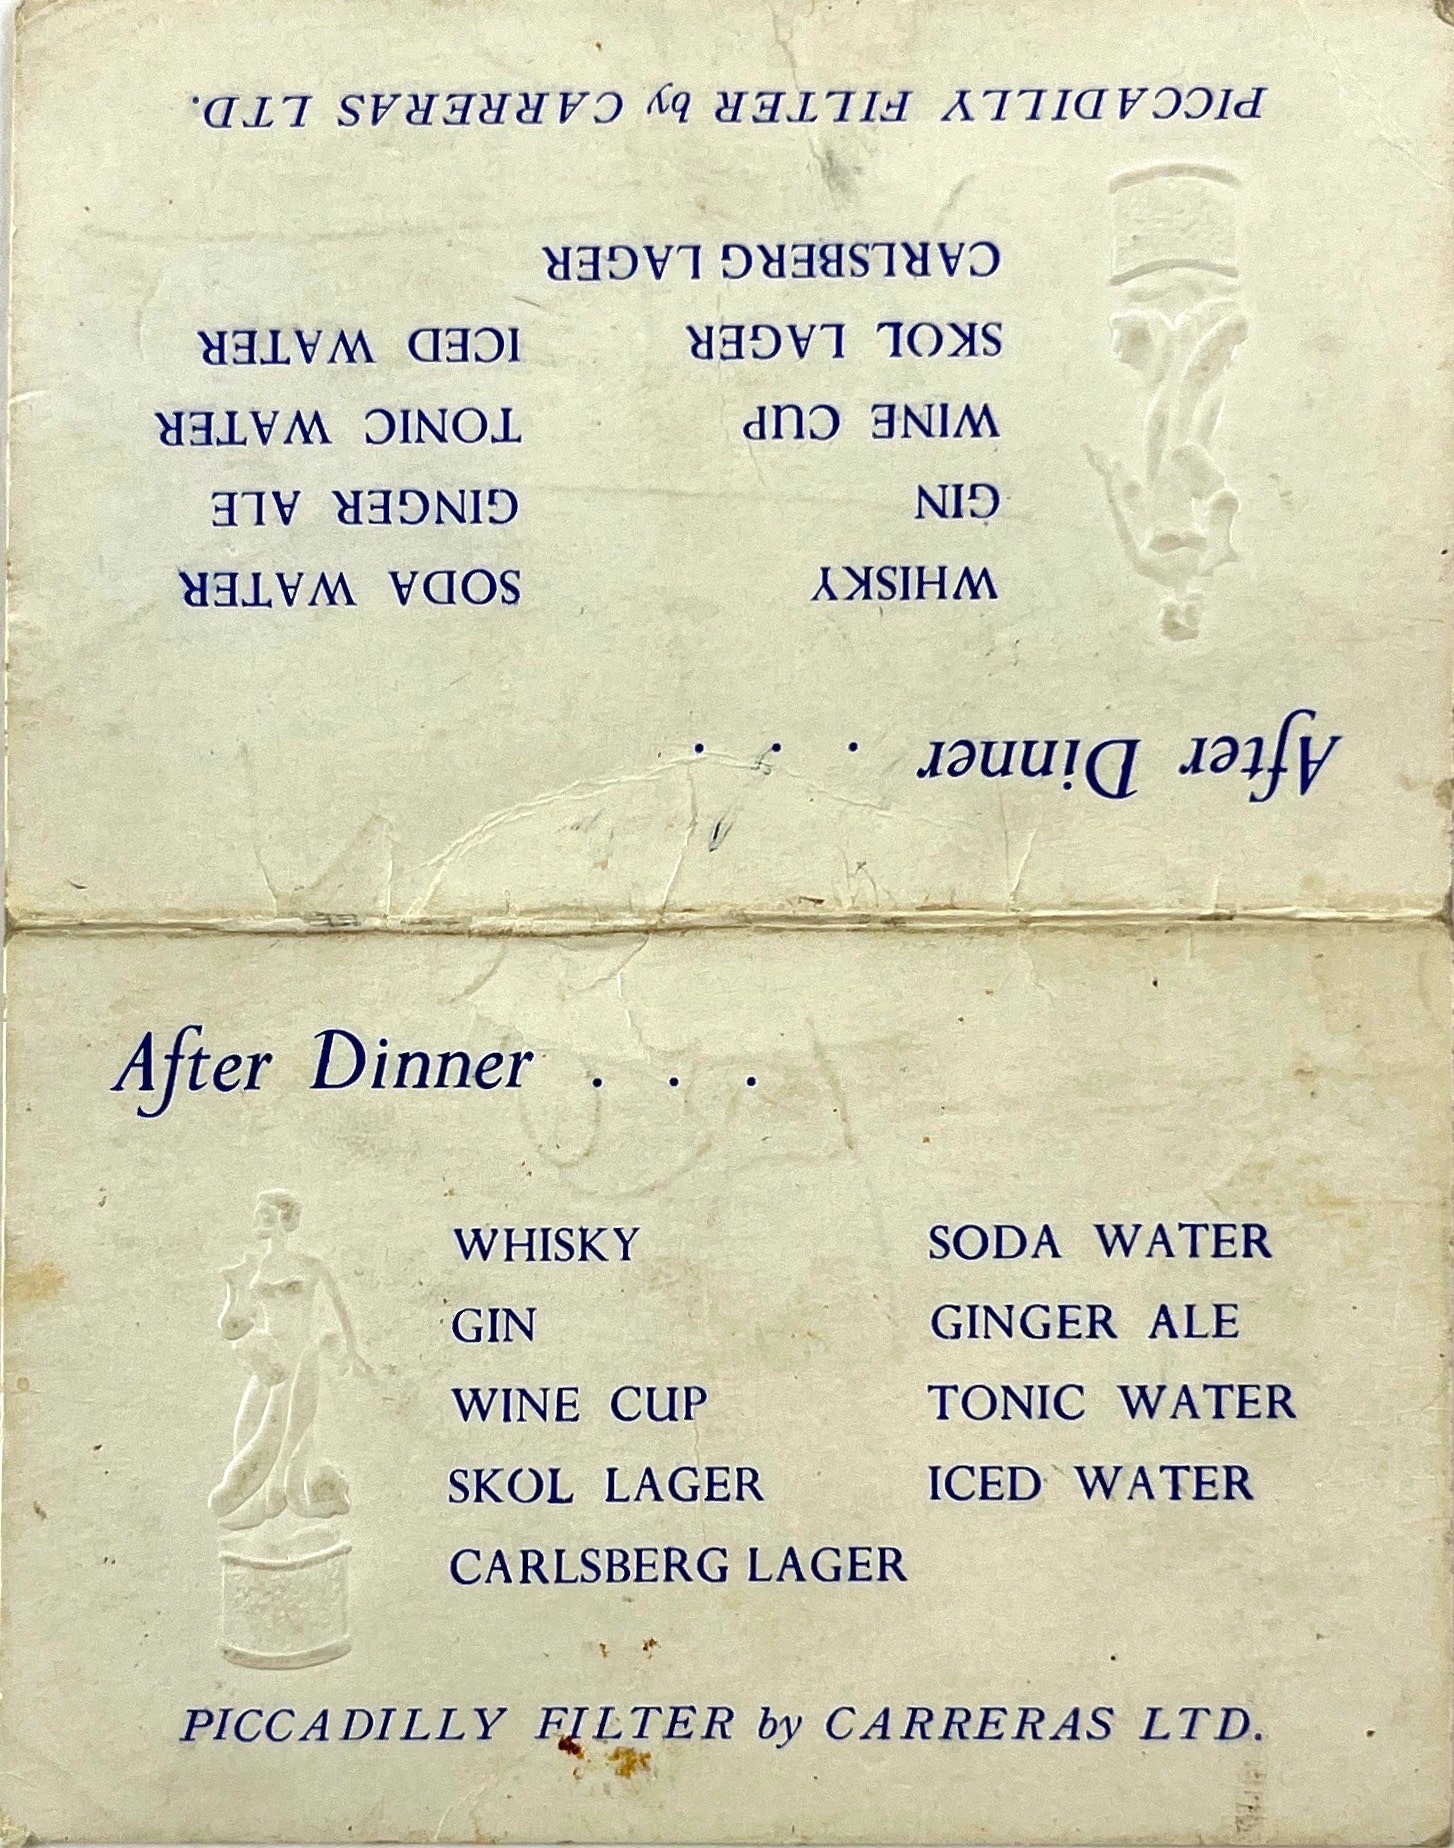 PICCADILLY FILTER by CARRERAS LTD.
CARLSBERG LAGER
SKOL LAGER ICED WATER
WINE CUP TONIC WATER
GIN GINGER ALE
WHISKY SODA WATER
After Dinner . . .
After Dinner . . .
WHISKY SODA WATER
GIN GINGER ALE
WINE CUP TONIC WATER
SKOL LAGER ICED WATER
CARLSBERG LAGER
PICCADILLY FILTER by CARRERAS LTD.